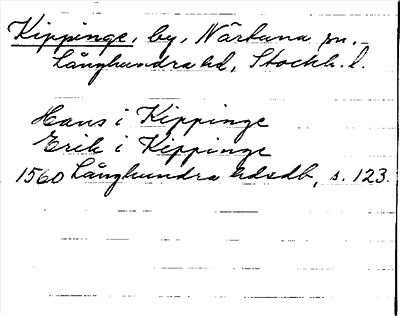 Kippinge, by, Närtuna sn.
Långhundra hd, Stockh. l.
Hans i Kippinge
Erik i Kippinge
1560 Långhundra hdsdb, s. 123.